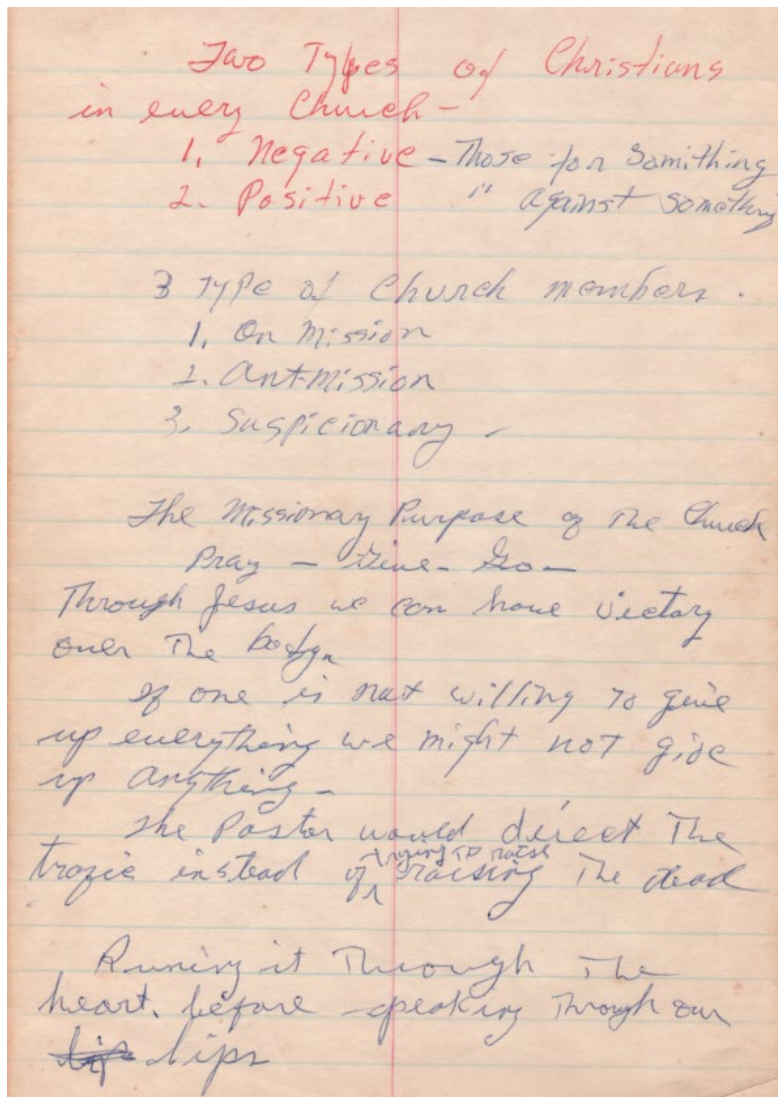 Two Types of Christians
in every Church –
1. Negative – Those for Somithing
2. Positive " against something
3 Type of Church members .
1. On Mission
2. Anti-mission
3. Suspicionary –
The Missionary Purpose of The Church
Pray – Give – Go –
Through Jesus we can have Victory
over The body.
If one is not willing to give
up everything we might not give
up anything –
The Pastor would direct The
trafic instead of trying to raise raising The dead
Runing it Through The
heart, before speaking Through our
lips